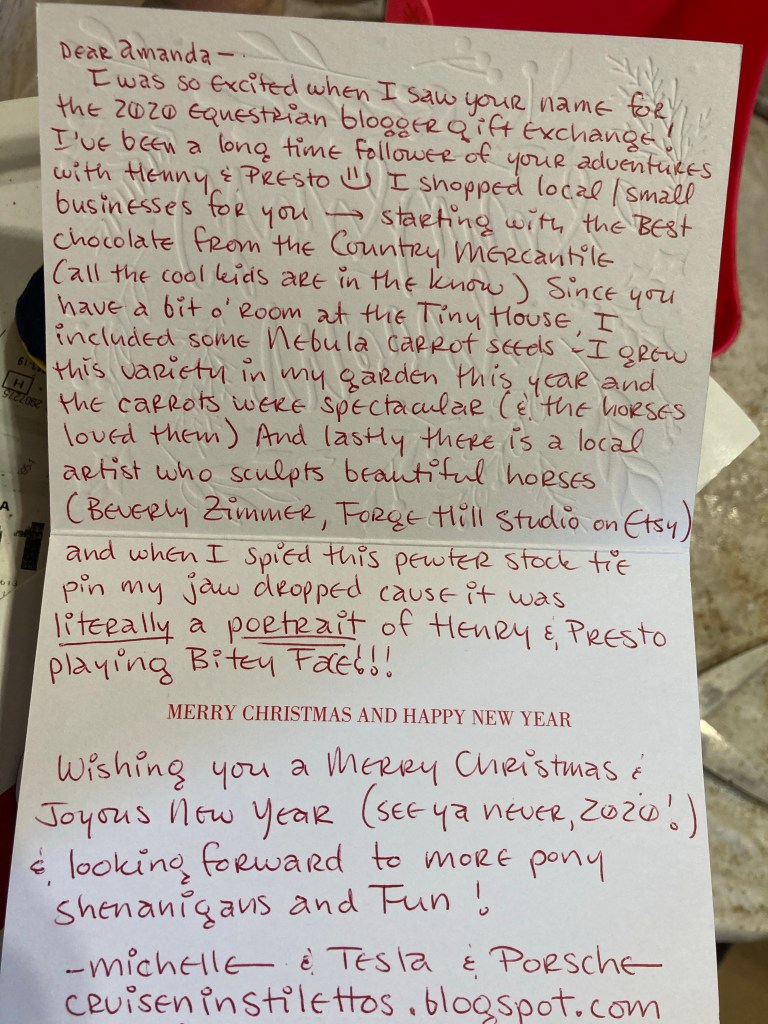 Dear Amanda —
I was so excited when I saw your name for
the 2020 Equestrian blogger gift exchange!
I've been a long time follower of your adventures
with Henny & Presto I shopped local/small
businesses for you → starting with the BEST
chocolate from the Country Mercantile
(all the cool kids are in the know) Since you
have a bit o' room at the Tiny House, I
included some Nebula carrot seeds - I grew
this variety in my garden this year and
the carrots were spectacular (& the horses
loved them) And lastly there is a local
artist who sculpts beautiful horses
(Beverly Zimmer, Forge Hill Studio on Etsy)
and when I spied this pewter stock tie
pin my jaw dropped cause it was
literally a portrait of Henry & Presto
playing Bitey Face!!!
MERRY CHRISTMAS AND HAPPY NEW YEAR
Wishing you a Merry Christmas &
Joyous New Year (see ya never, 2020!)
& looking forward to more pony
shenanigans and Fun!
— michelle & Tesla & Porsche
cruiseninstilettos.blogspot.com